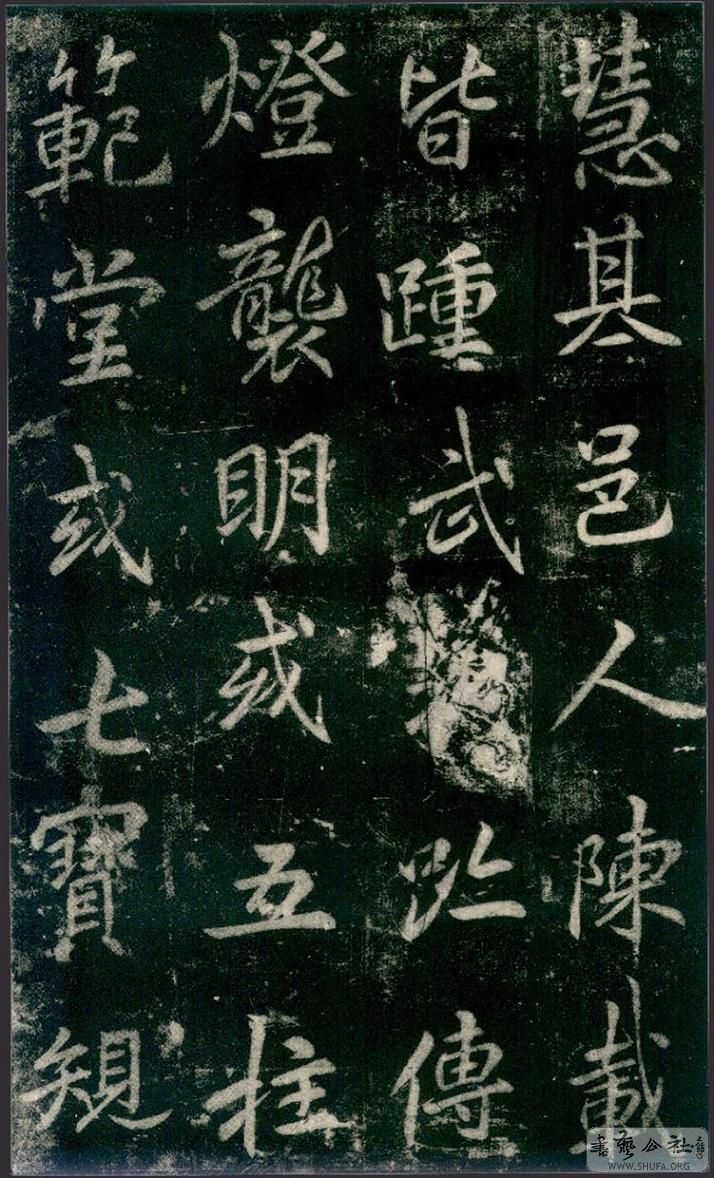 慧基邑人陳載
皆踵武趾傳
燈襲明或五柱
範堂或七寶規
書藝公社
WWW.SHUFA.ORG